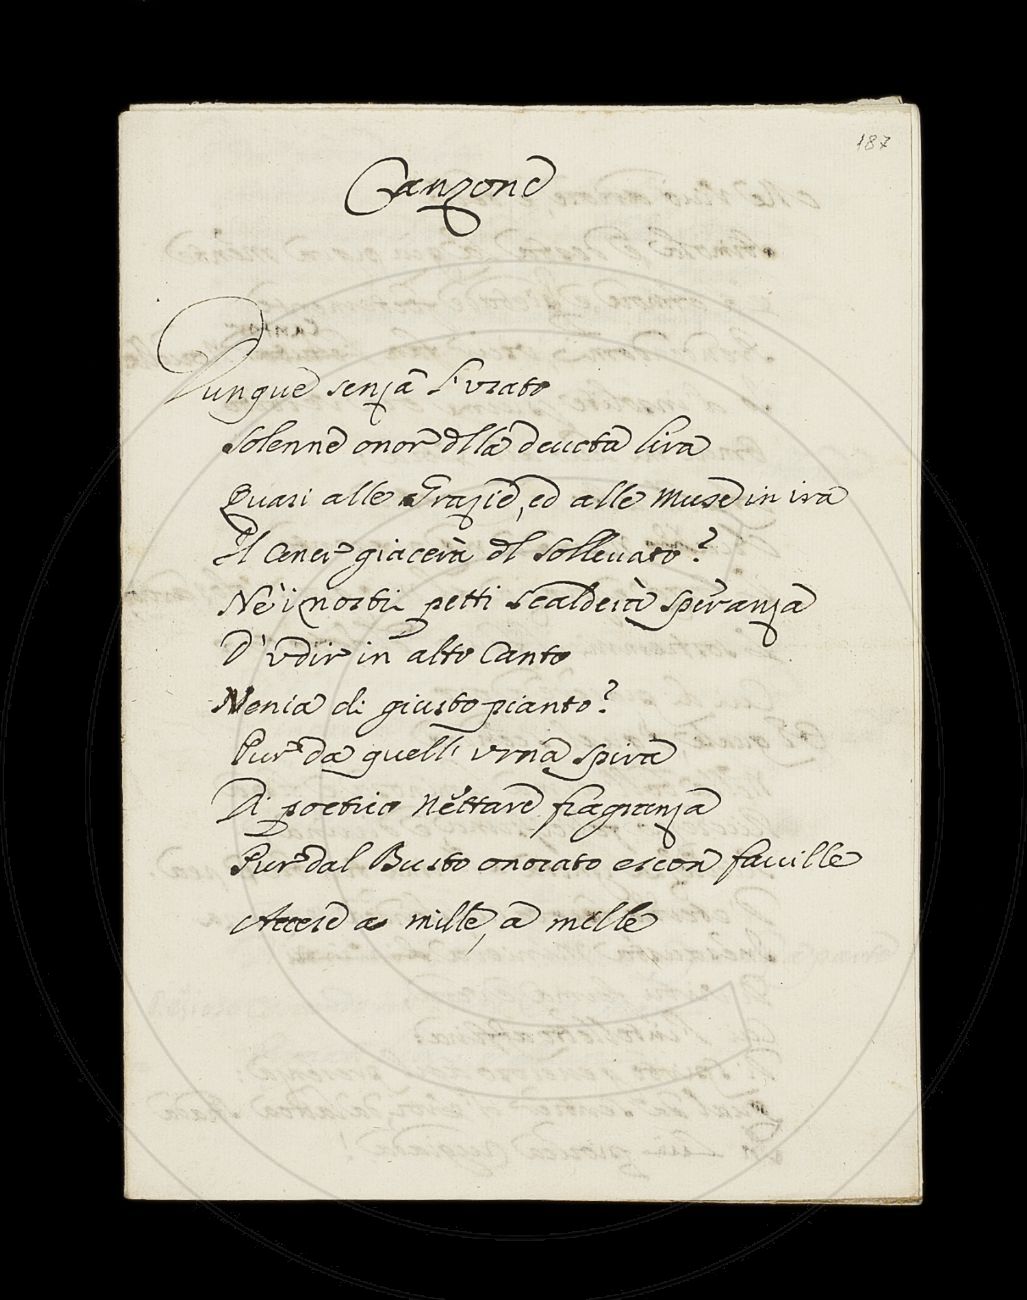 187
Canzone
Dunque senza l'usato
Solenne onor dlla devota lira
Quasi alle Grazie, ed alle Muse in ira
Il Cener giacerà dl Sollevato?
Nè i nostri petti scalderà speranza
D'udir in alto Canto
Nenia di giusto pianto?
Pur da quell'urna spira
Di poetico Nettare fragranza
Pur dal Busto onorato escon faville
Accese a mille, a mille